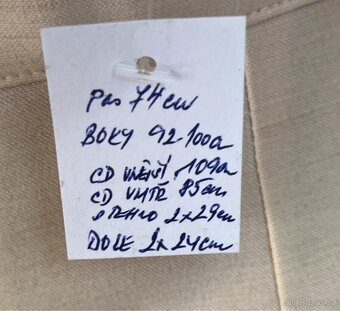 pas 74 cm
BOKY 92-100cm
CD VNĚJŠÍ 109cm
CD VNITŘ 85cm
STEHNO 2x29cm
DOLE 2x24cm